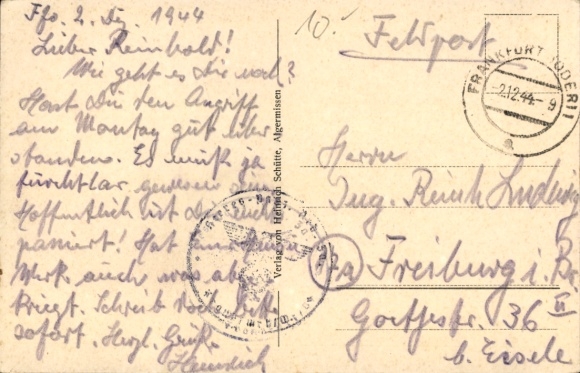 Ffo. 2. Dez. 1944
Lieber Reinhold!
Wie geht es Dir noch?
Hast Du den Angriff
am Montag gut über
standen. Es muß ja
furchtbar gewesen sein
Hoffentlich ist Dir nichts
passiert! Hat
Werk auch was abge
kriegt. Schreib doch bitte
sofort. Herzl. Grüße
Heinrich
Verlag von Heinrich Schütte, Algermissen
10.-
Feldpost
FRANKFURT (ODER) 1
-2.12.44.- 9
a
Herrn
Ing. Reinh. Ludwig
17a Freiburg i. Br.
Goethestr. 36 II
b. Eisele